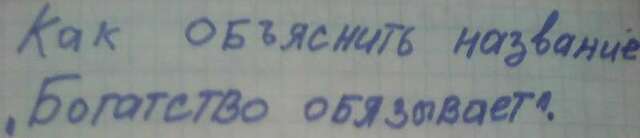 Как объяснить название
„Богатство обязывает".